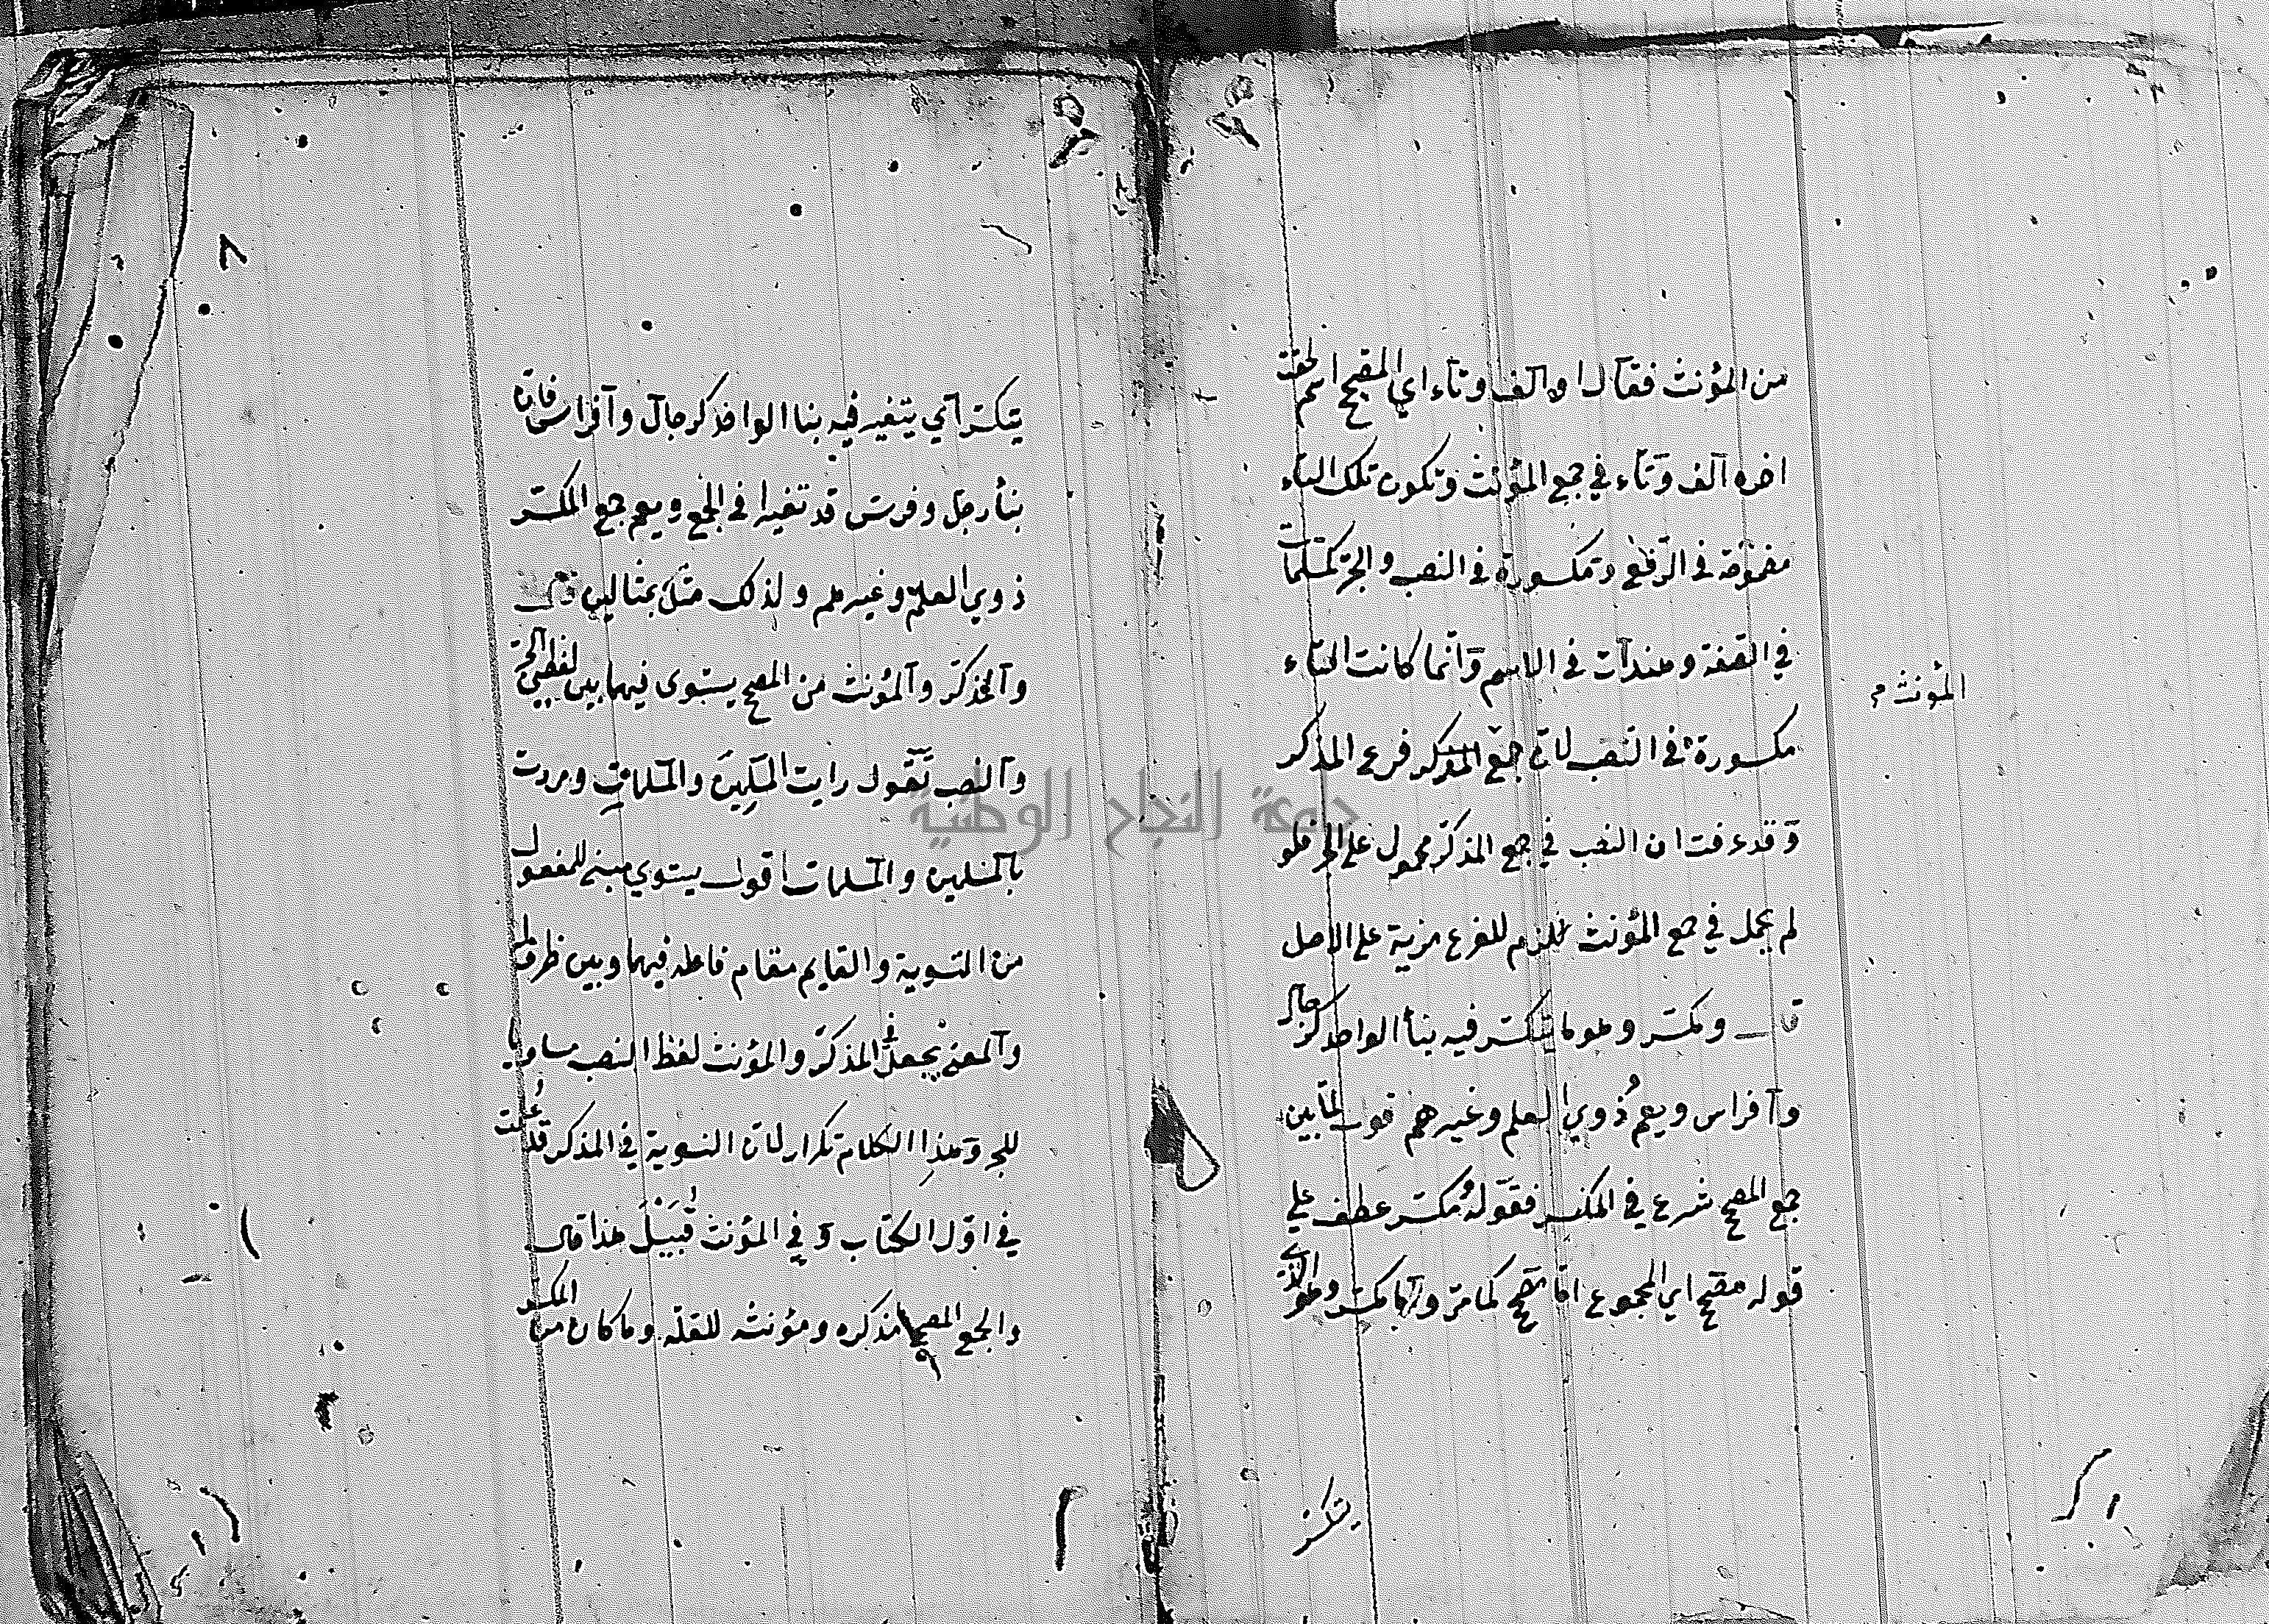 من المؤنث فقال او الف وتاء اي المصحح اسم لحقت
اخره الف وتاء في جمع المؤنث وتكون تلك التاء
مضمومة في الرفع ومكسورة في النصب والجر كمسلمات
في الصفة وهندات في الاسم وانما كانت التاء
مكسورة في النصب لان جمع المذكر فرع المذكر
المؤنث م
وقد عرفت ان النصب في جمع المذكر محمول على الجر فلو
لم يحمل في جمع المؤنث للزم للفرع مزية على الاصل
قال ومكسر وهو ما يتكسر فيه بنأ الواحد كرجال
وافراس ويعم ذوي العلم وغيرهم قول لما بين
جمع المصحح شرع في المكسر فقوله مكسر عطف علي
قوله مصحح اي المجموع اما مصحح كما مر واما مكسر وهو الذي
يتكسر
٨
يتكسر اي يتغير فيه بنا الواحد كرجال وافراس فان
بنأ رجل وفرس قد تغيرا في الجمع ويعم جمع المكسر
ذوي العلم وغيرهم ولذلك مثل بمثالين قال
والمذكر والمؤنث من المصحح يستوى فيهما بين لفظي الجر
والنصب تقول رايت المسلمين والمسلمات ومررت
بالمسلمين والمسلمات اقول يستوي مبني للمفعول
من التسوية والقايم مقام فاعله فيهما وبين ظرف له
والمعني يجعل في المذكر والمؤنث لفظ النصب مساويا
للجر وهذا الكلام تكرار لان التسوية في المذكر قد علمت
في اول الكتاب وفي المؤنث قبيل هذا قال
والجمع المصحح مذكره ومؤنثه للقلة وما كان من المكسر
جامعة النجاح الوطنية